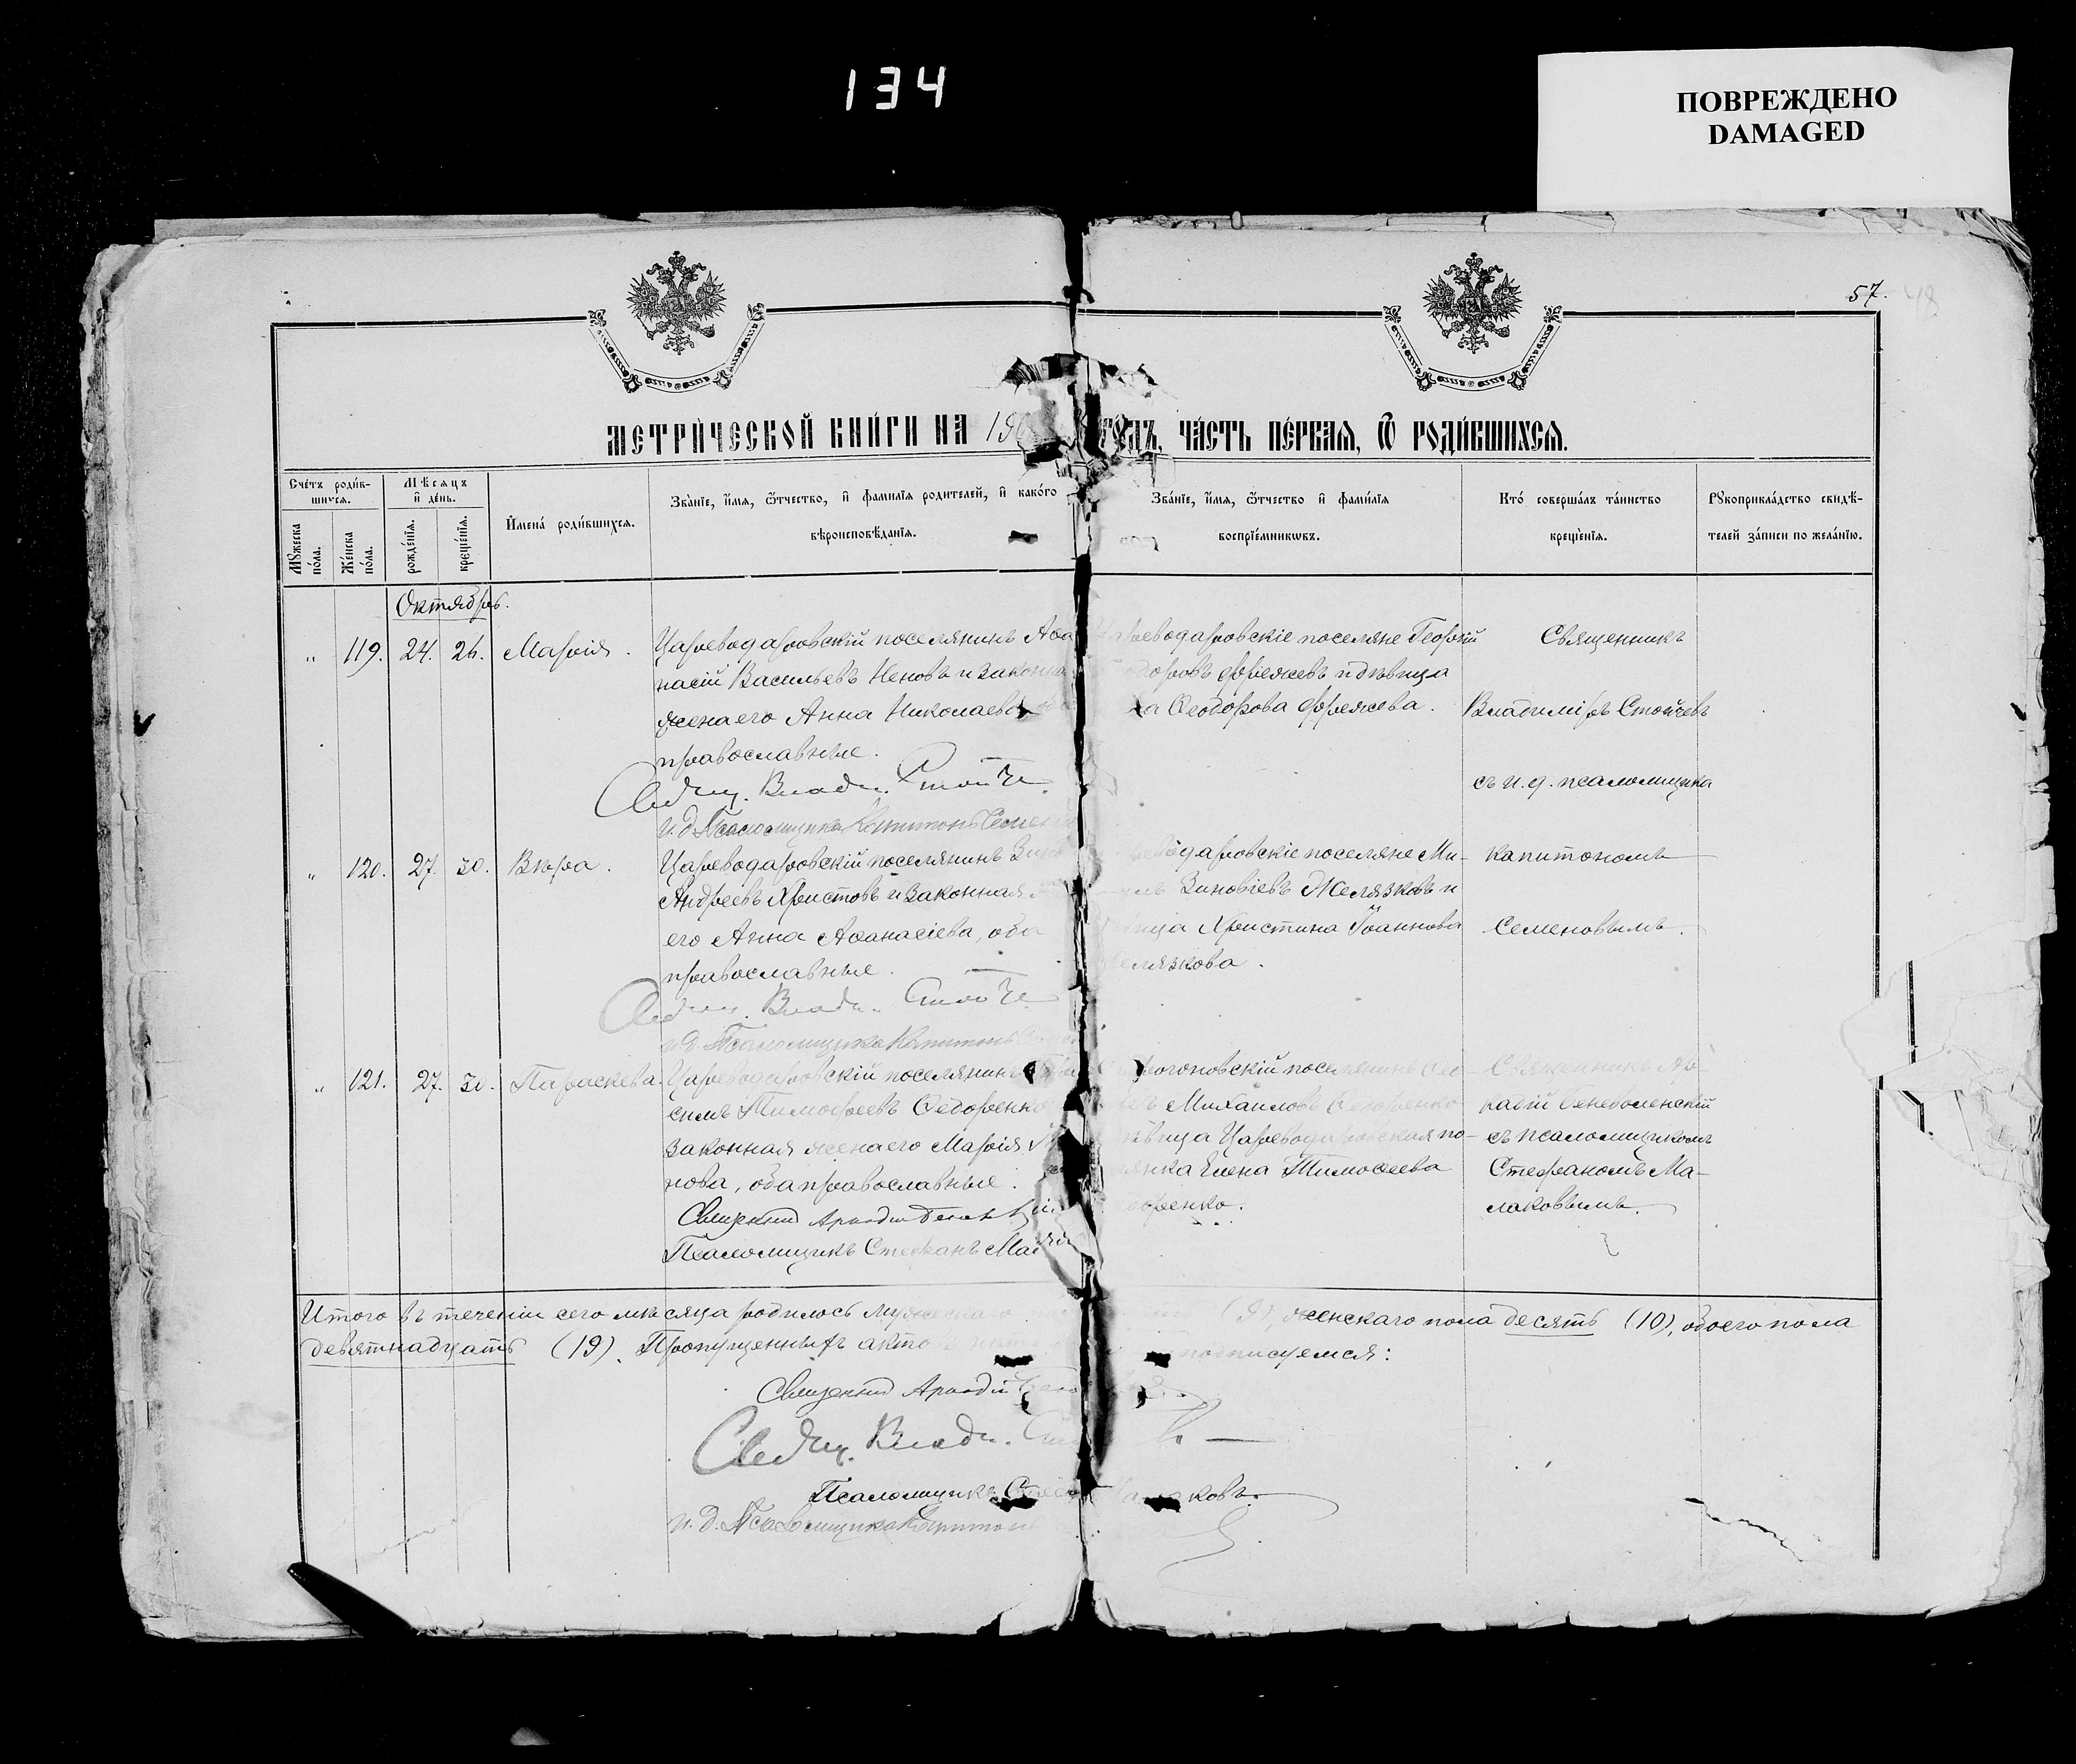 134
ПОВРЕЖДЕНО
DAMAGED
57.
МЕТРИЧЕСКОЙ КНИГИ НА 190 ГОДЪ, ЧАСТЬ ПЕРВАЯ, Ѿ РОДИВШИХСЯ.
Счетъ родив-шихся.
Мужеска пола.
Женска пола.
Мѣсяцъ и день.
рожденія.
крещенія.
Имена родившихся.
Званіе, имя, ѿтчество, и фамилія родителей, и какого
вѣроисповѣданія.
Званіе, имя, ѿтчество и фамилія
воспріемниковъ.
Кто совершалъ таинство
крещенія.
Рукоприкладство свидѣ-
телей записи по желанію.
Октябрь.
" 119. 24. 26. Марія.
Цареводаровскій поселянинъ Аѳа
насій Васильевъ Неновъ и законная
жена его Анна Николаева
православные.
Свящ. Влад. Стойче
и. д. Псаломщика Капитонъ Семен
Цареводаровскіе поселяне Георгій
Ѳеодоровъ Фрежевъ и дѣвица
Ѳеодорова Фрежева.
Священникъ
Владиміръ Стойчевъ
съ и. д. псаломщика
" 120. 27. 30. Вѣра.
Цареводаровскій поселянинъ
Андреевъ Христовъ и законная
его Анна Аѳанасіева, оба
православные.
Свящ. Влад. Стойче
и. д. Псаломщика Капитонъ
водаровскіе поселяне Ми-
Зиновіевъ Желязковъ и
дѣвица Христина Іоаннова
Желязкова.
Капитономъ
Семеновымъ.
" 121. 27. 30. Параскева.
Цареводаровскій поселянинъ
симъ Тимоѳеевъ Ѳедоренко
законная жена его Марія
нова, оба православные.
Священник Аркадій
Псаломщикъ Стефанъ Мал
поселянинъ
Михаиловъ Ѳедоренко
дѣвица Цареводаровская по-
лянка Елена Тимоѳеева
доренко.
Священникъ Ар-
кадій Бенедоленскій
съ псаломщикомъ
Стефаномъ Ма-
лаковымъ.
Итого въ теченіи сего мѣсяца родилось мужескаго (9), женскаго пола десять (10), обоего пола
девятнадцать (19). Пропущенныхъ актовъ подписуемся:
Священник Аркадій
Свящ. Влад.
Псаломщикъ Малаковъ.
и. д. Псаломщика Капитонъ